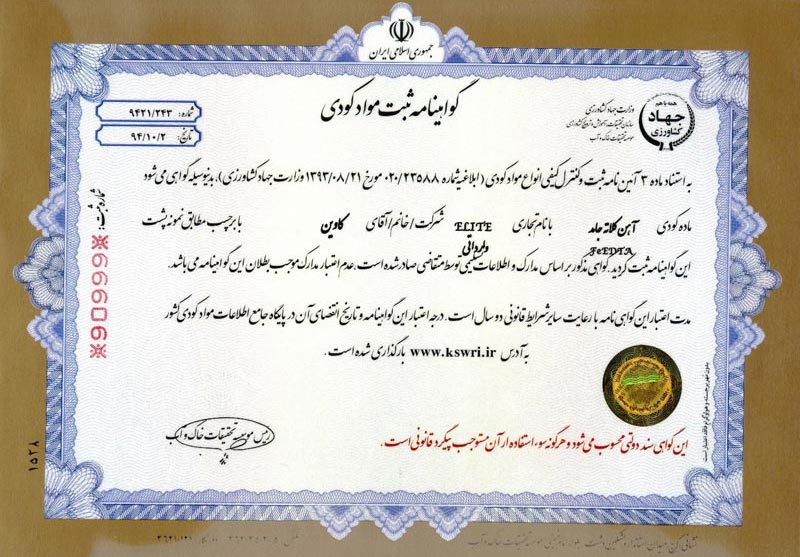 جمهوری اسلامی ایران
همه با هم
جهاد
کشاورزی
وزارت جهاد کشاورزی
سازمان تحقیقات، آموزش و ترویج کشاورزی
موسسه تحقیقات خاک و آب
گواهینامه ثبت مواد کودی
شماره: ۹۴۲۱/۲۴۳
تاریخ: ۹۴/۱۰/۲
شماره ثبت:
※90999※
به استناد ماده ۳ آیین نامه ثبت و کنترل کیفی انواع مواد کودی (ابلاغیه شماره ۰۲۰/۲۳۵۸۸ مورخ ۱۳۹۳/۰۸/۲۱ وزارت جهاد کشاورزی)، بدینوسیله گواهی می شود
ماده کودی آهن کلاته جامد FeEDTA با نام تجاری ELITE شرکت/خانم/آقای کاوین با برچسب مطابق نمونه پشت
این گواهینامه ثبت گردید. گواهی مذکور بر اساس مدارک و اطلاعات تسلیمی توسط متقاضی صادر شده است. عدم اعتبار مدارک موجب بطلان این گواهینامه می باشد.
مدت اعتبار این گواهی نامه با رعایت سایر شرایط قانونی دو سال است. درجه اعتبار این گواهینامه و تاریخ انقضای آن در پایگاه جامع اطلاعات مواد کودی کشور
به آدرس www.kswri.ir بارگذاری شده است.
بدون مهر برجسته و هولوگرام فاقد اعتبار است
رئیس موسسه تحقیقات خاک و آب
این گواهی سند دولتی محسوب می شود و هرگونه سوء استفاده از آن مستوجب پیگرد قانونی است.
۱۵۲۸